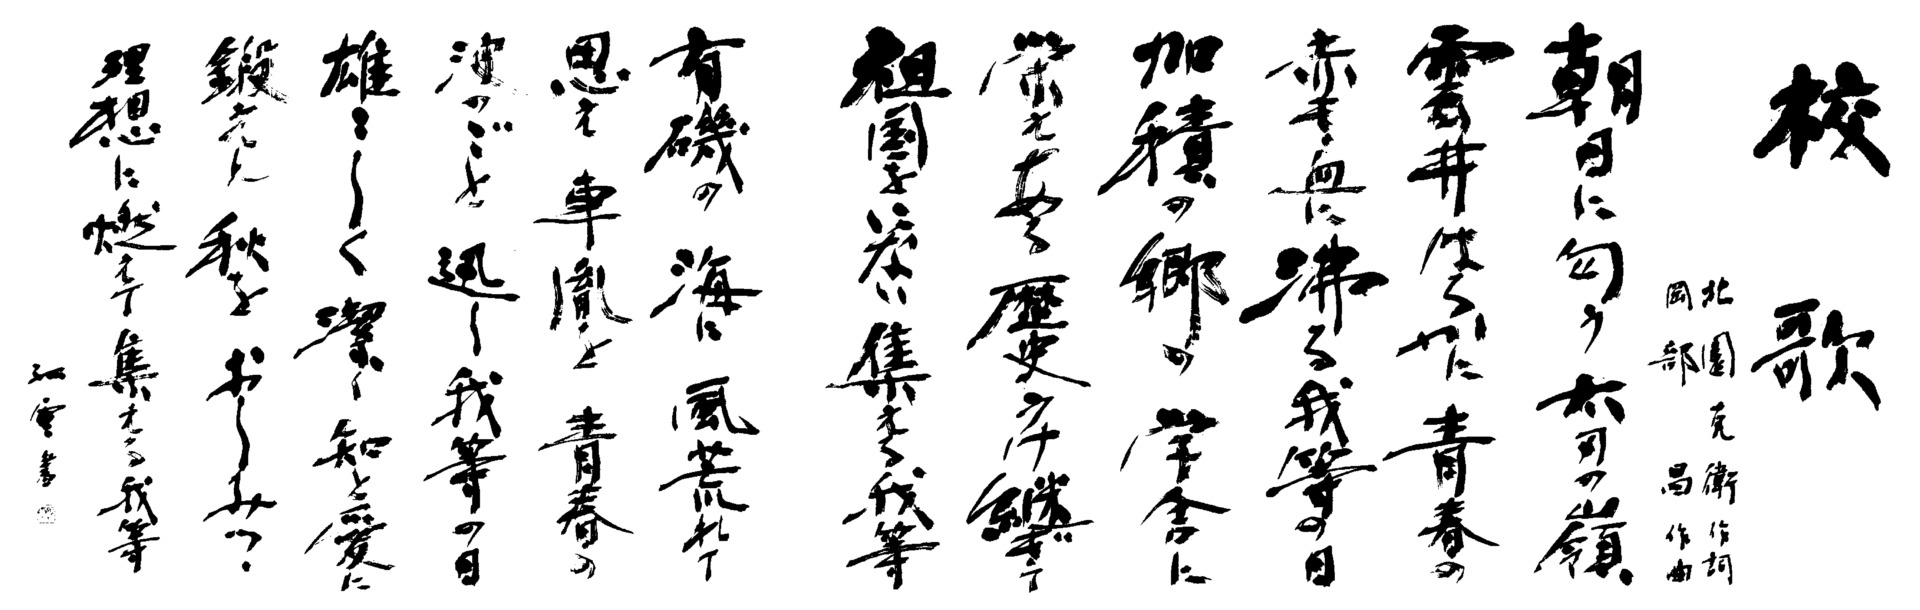 校歌
北園克衛作詞
岡部昌作曲
朝日に匂う 太刀の嶺
雲井はるかに 青春の
赤き血に沸る 我等の日
加積の郷の 学舎に
栄えある歴史 うけ継ぎて
祖国を荷ない 集える我等
有磯の 海に 風荒れて
思え 車胤を 青春の
波のごと 迅し 我等の日
雄々しく 潔く 知と愛に
鍛えん 秋を おしみつゝ
理想に燃えて 集える我等